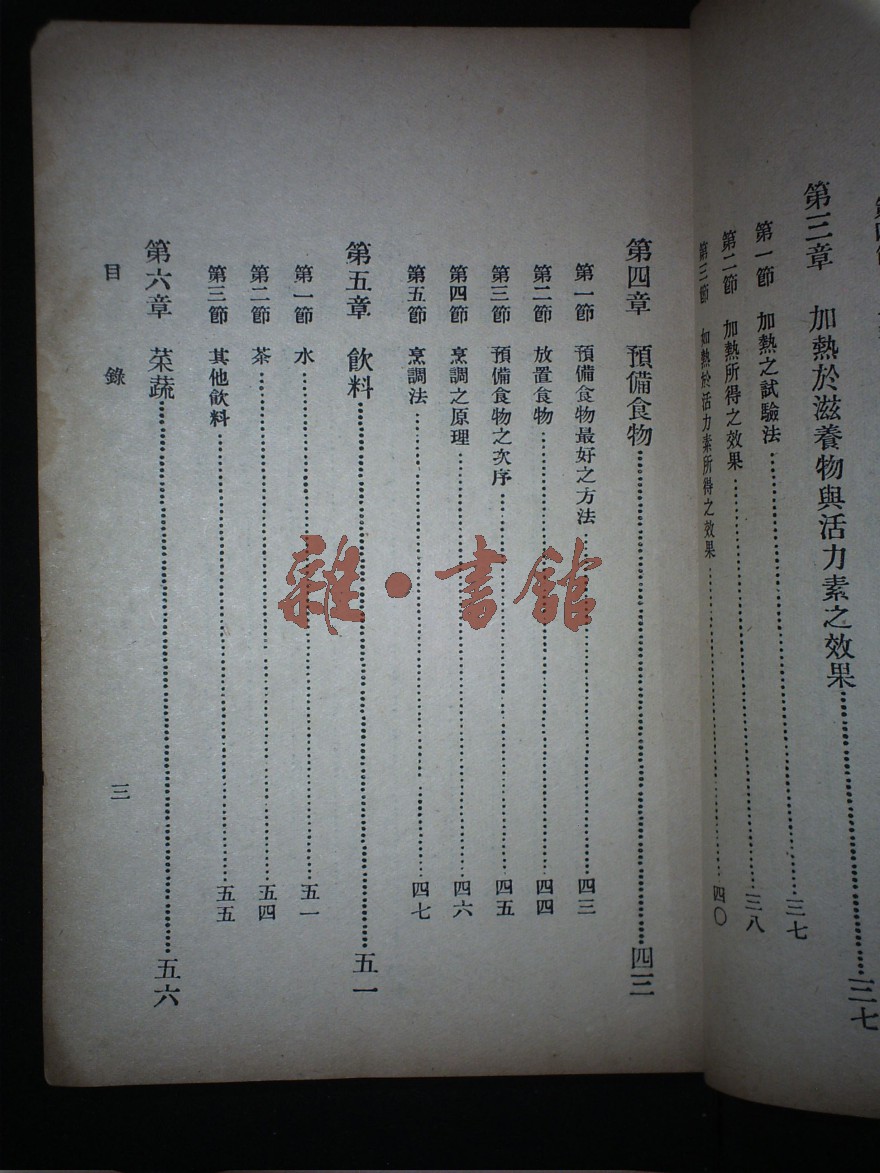 第三章　加熱於滋養物與活力素之效果……三七
第一節　加熱之試驗法……三七
第二節　加熱所得之效果……三八
第三節　加熱於活力素所得之效果……四〇
第四章　預備食物……四三
第一節　預備食物最好之方法……四三
第二節　放置食物……四四
第三節　預備食物之次序……四五
第四節　烹調之原理……四六
第五節　烹調法……四七
第五章　飲料……五一
第一節　水……五一
第二節　茶……五四
第三節　其他飲料……五五
第六章　菜蔬……五六
目錄　三
雜·書館